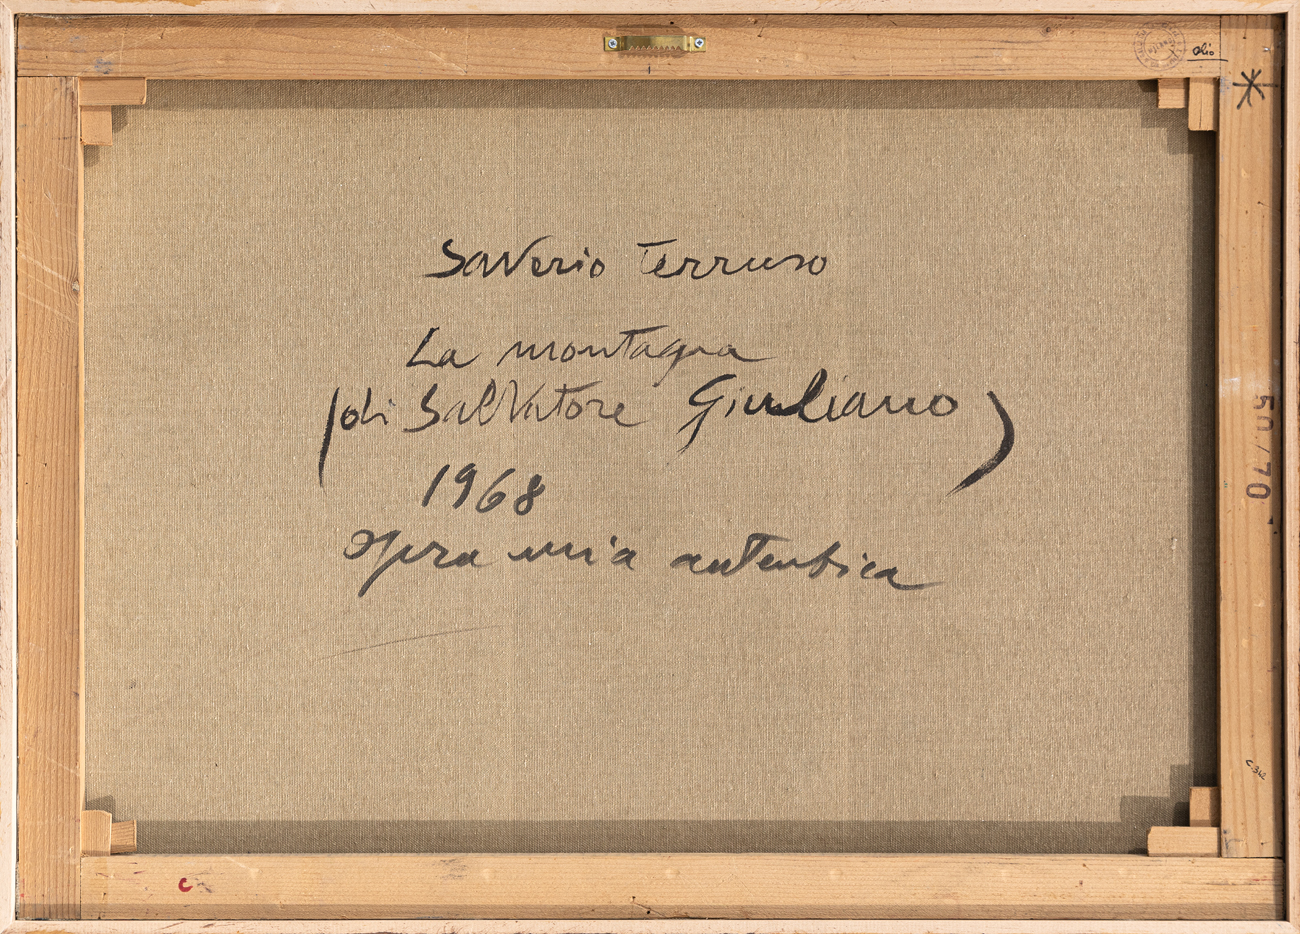 olio
Saverio Terruso
La montagna
(di Salvatore Giuliano)
1968
opera mia autentica
50/70
C 342
C